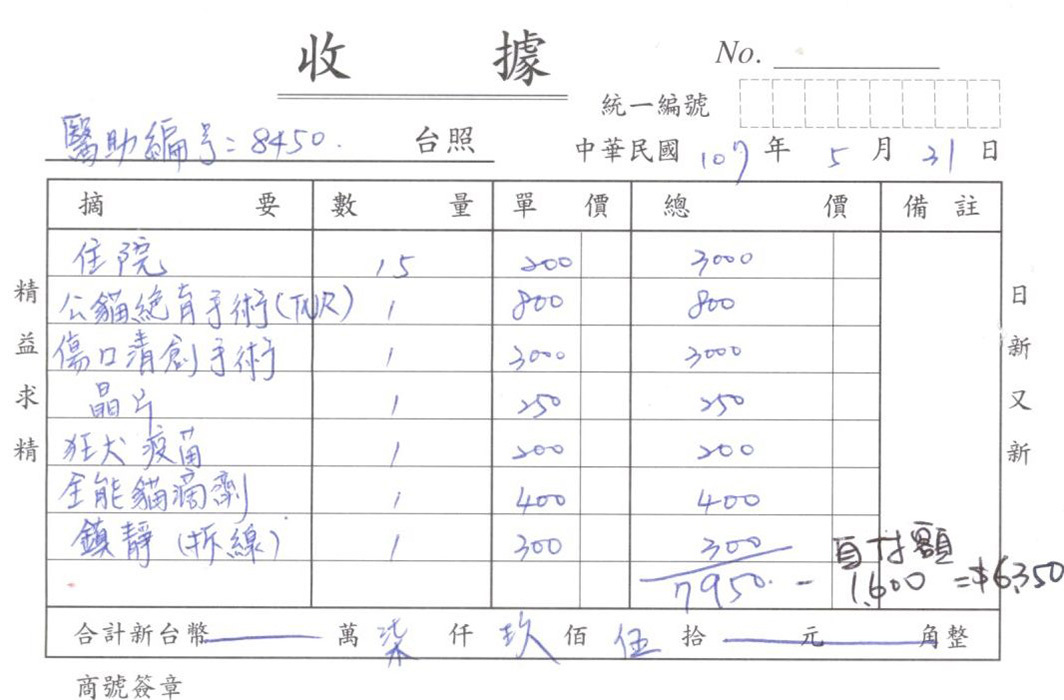 收據
No.
統一編號
醫助編号：8450. 台照
中華民國 107 年 5 月 31 日
摘要 數量 單價 總價 備註
住院 15 200 3000
公貓絕育手術(TNR) 1 800 800
傷口清創手術 1 3000 3000
晶片 1 250 250
狂犬疫苗 1 200 200
全能貓滴劑 1 400 400
鎮靜(拆線) 1 300 300
7950. - 自付額 1,600 = $6,350
合計新台幣 萬 柒 仟 玖 佰 伍 拾 元 角整
商號簽章
精益求精
日新又新